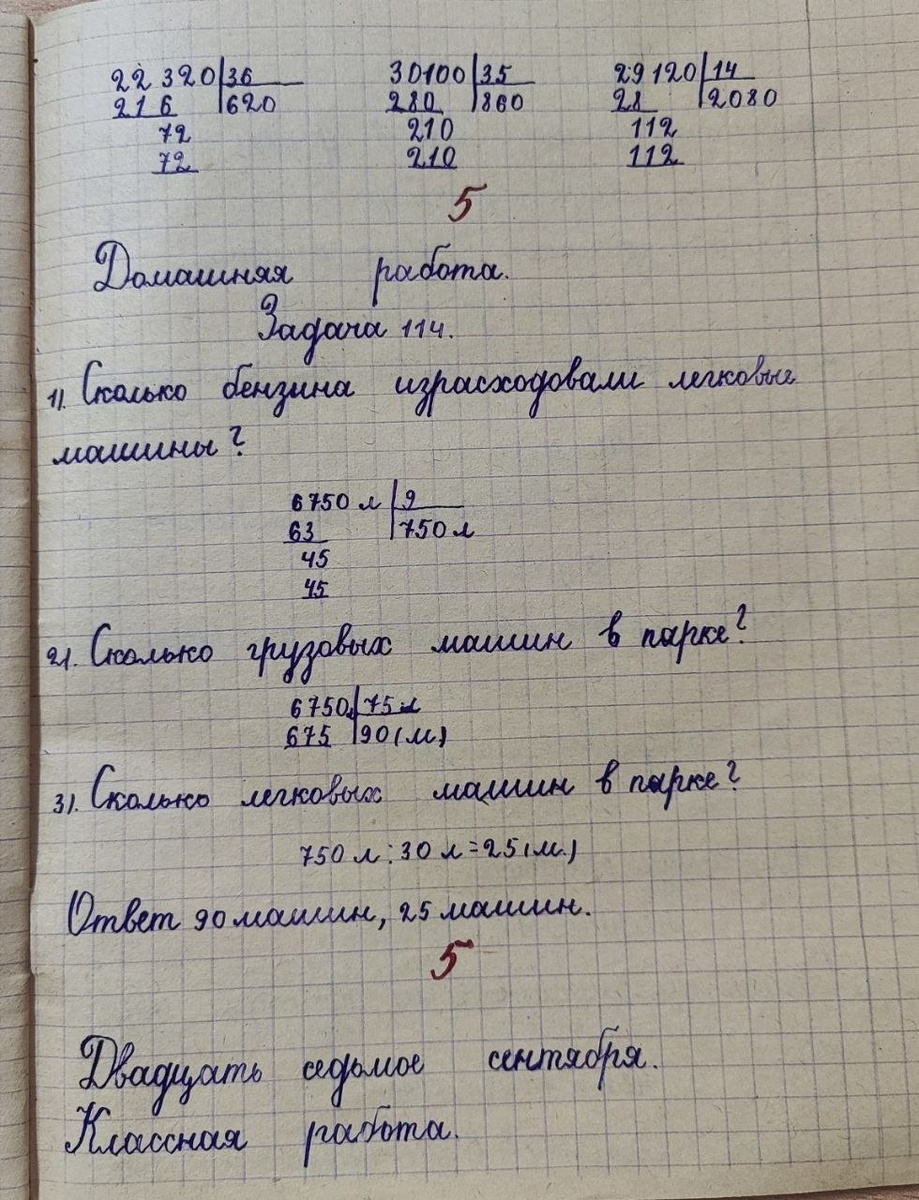 22320|36 30100|35 29120|14
216 |620 280 |860 28 |2080
72 210 112
72 210 112
5
Домашняя работа.
Задача 114.
1). Сколько бензина израсходовали легковые
машины?
6750 л|9
63 |750 л
45
45
2). Сколько грузовых машин в парке?
6750|75 л
675 |90 (м)
3). Сколько легковых машин в парке?
750 л : 30 л = 25 (м.)
Ответ 90 машин, 25 машин.
5
Двадцать седьмое сентября.
Классная работа.